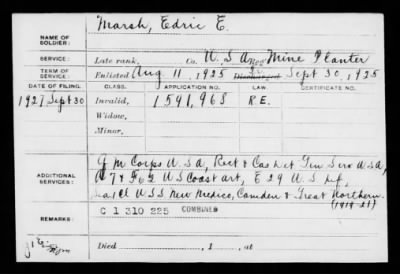 Marsh, Edric E.
NAME OF SOLDIER:
SERVICE: Late rank, Co. U.S.A. Mine Planter
Enlisted Aug 11, 1925 Discharged Sept 30, 1925
DATE OF FILING. CLASS. APPLICATION NO. LAW. CERTIFICATE NO.
1927 Sept 30 Invalid, 1,591,968 R.E.
Widow,
Minor,
Q M Corps U.S.A, Rect & Cas Det Gen Serv U.S.A,
ADDITIONAL SERVICES: & F 62 U S Coast art, E 29 U.S. Inf,
U.S.S. New Mexico, Camden & Great Northern.
(1919-21)
REMARKS: C 1 310 225 COMBINED
Died , 1 , at